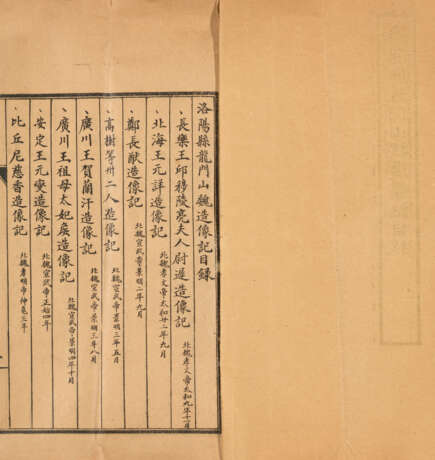 洛陽縣龍門山魏造像記目錄
、長樂王邱穆陵亮夫人尉遲造像記 北魏孝文帝太和九年十一月
、北海王元詳造像記 北魏孝文帝太和廿二年九月
、鄭長猷造像記 北魏宣武帝景明二年九月
、高樹等卅二人造像記 北魏宣武帝景明三年五月
、廣川王賀蘭汗造像記 北魏宣武帝景明三年八月
、廣川王祖母太妃矦造像記 北魏宣武帝景明四年十月
、安定王元燮造像記 北魏宣武帝正始四年
、比丘尼慈香造像記 北魏孝明帝神龜三年